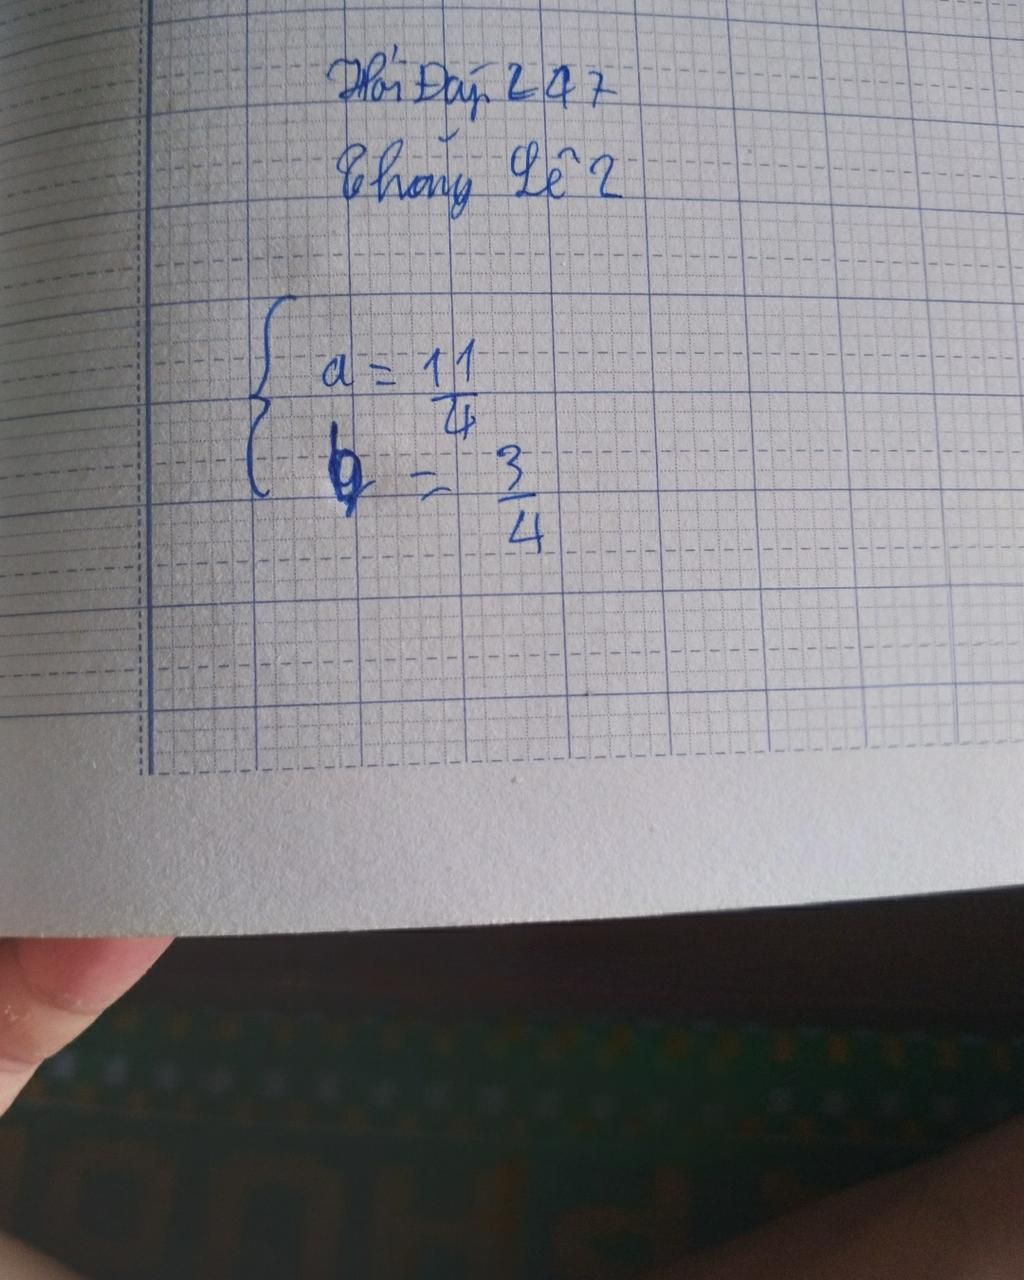 Hỏi Đáp 247
Thống Lê 2
a = 11/4
b = 3/4